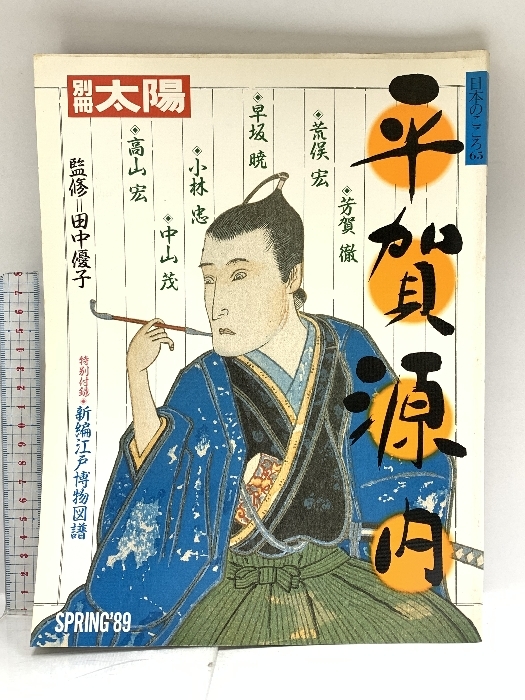 日本のこころ65
平賀源内
別冊太陽
◈荒俣 宏
◈芳賀 徹
◈早坂 暁
◈小林 忠
◈高山 宏
◈中山 茂
監修=田中優子
特別付録◈新編江戸博物図譜
SPRING'89